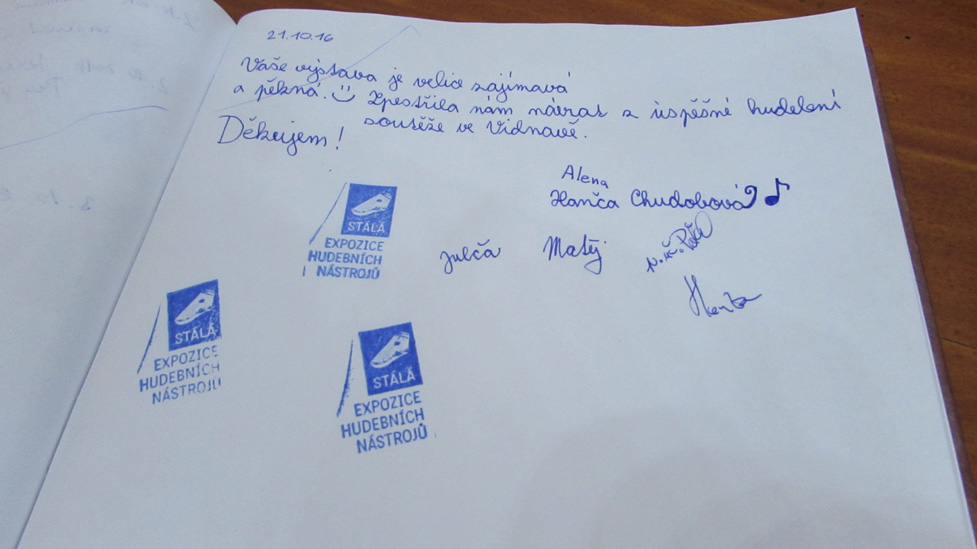 21.10.16
Vaše výstava je velice zajímavá
a pěkná. Zpestřila nám návrat z úspěšné hudební
soutěže ve Vidnavě.
Děkujem!
Alena
Hanča Chudobová
STÁLÁ
EXPOZICE
HUDEBNÍCH
NÁSTROJŮ
Julča Matěj
STÁLÁ
EXPOZICE
HUDEBNÍCH
NÁSTROJŮ
STÁLÁ
EXPOZICE
HUDEBNÍCH
NÁSTROJŮ